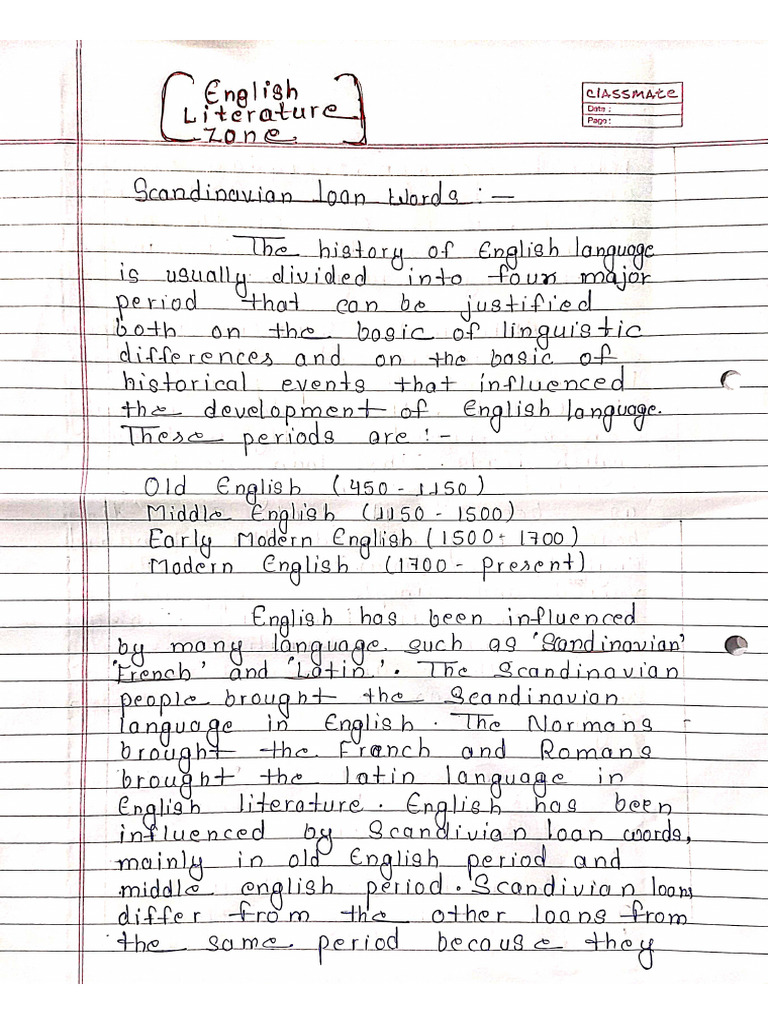 English
Literature
Zone
classmate
Date :
Page :
Scandinavian loan words : —
The history of English language
is usually divided into four major
period that can be justified
both on the basic of linguistic
differences and on the basic of
historical events that influenced
the development of English language.
These periods are : -
Old English (450 - 1150)
Middle English (1150 - 1500)
Early Modern English (1500 - 1700)
Modern English (1700 - Present)
English has been influenced
by many language such as 'Scandinavian'
'French' and 'Latin'. The Scandinavian
people brought the Scandinavian
language in English. The Normans
brought the French and Romans
brought the latin language in
English literature. English has been
influenced by Scandivian loan words,
mainly in old English period and
middle english period. Scandivian loans
differ from the other loans from
the same period because they